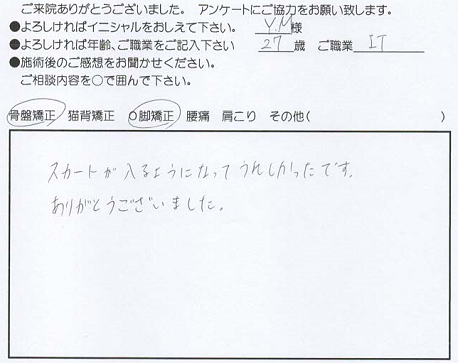 ご来院ありがとうございました。 アンケートにご協力をお願い致します。
●よろしければイニシャルをおしえて下さい。 Y.M 様
●よろしければ年齢、ご職業をご記入下さい 27 歳 ご職業 IT
●施術後のご感想をお聞かせください。
ご相談内容を○で囲んで下さい。
骨盤矯正 猫背矯正 O脚矯正 腰痛 肩こり その他( )
スカートが入るようになってうれしかったです。
ありがとうございました。